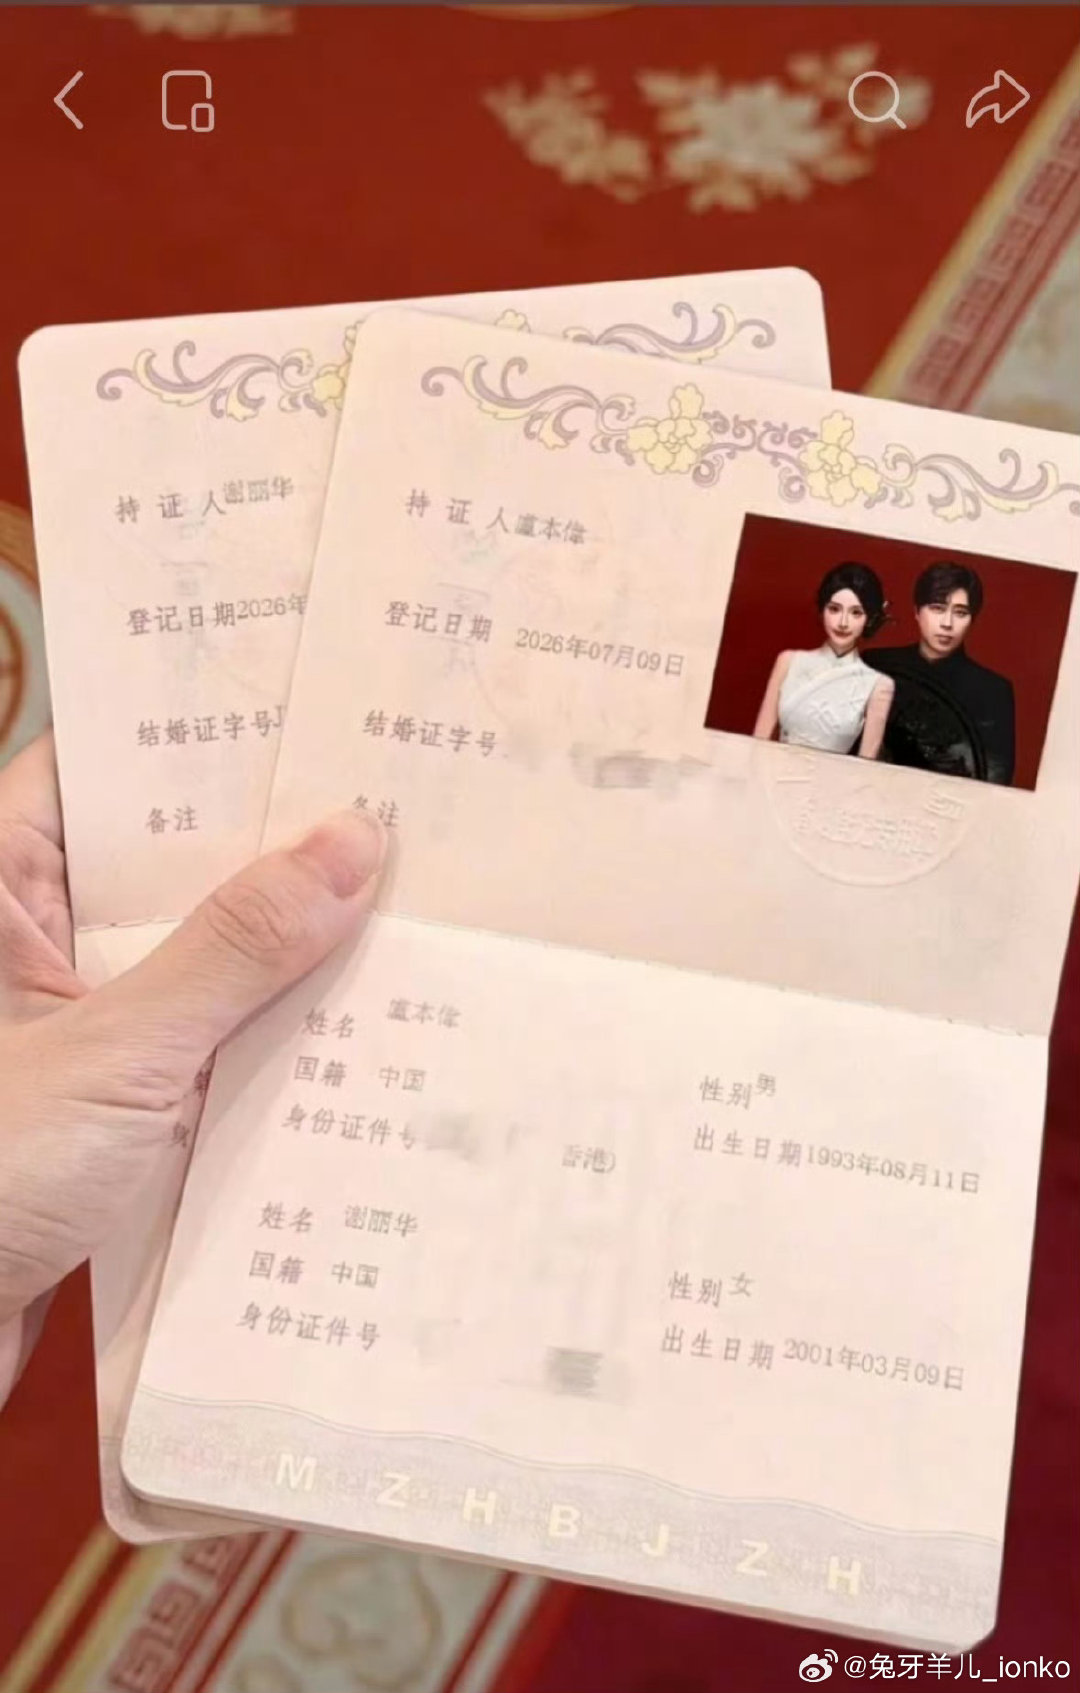 持证人谢丽华
登记日期2026年
结婚证字号J
备注
持证人盧本偉
登记日期 2026年07月09日
结婚证字号
备注
姓名 盧本偉
国籍 中国
性别男
身份证件号
香港)
出生日期1993年08月11日
姓名 谢丽华
国籍 中国
性别女
身份证件号
出生日期 2001年03月09日
MZHBJZH
@兔牙羊儿_ionko